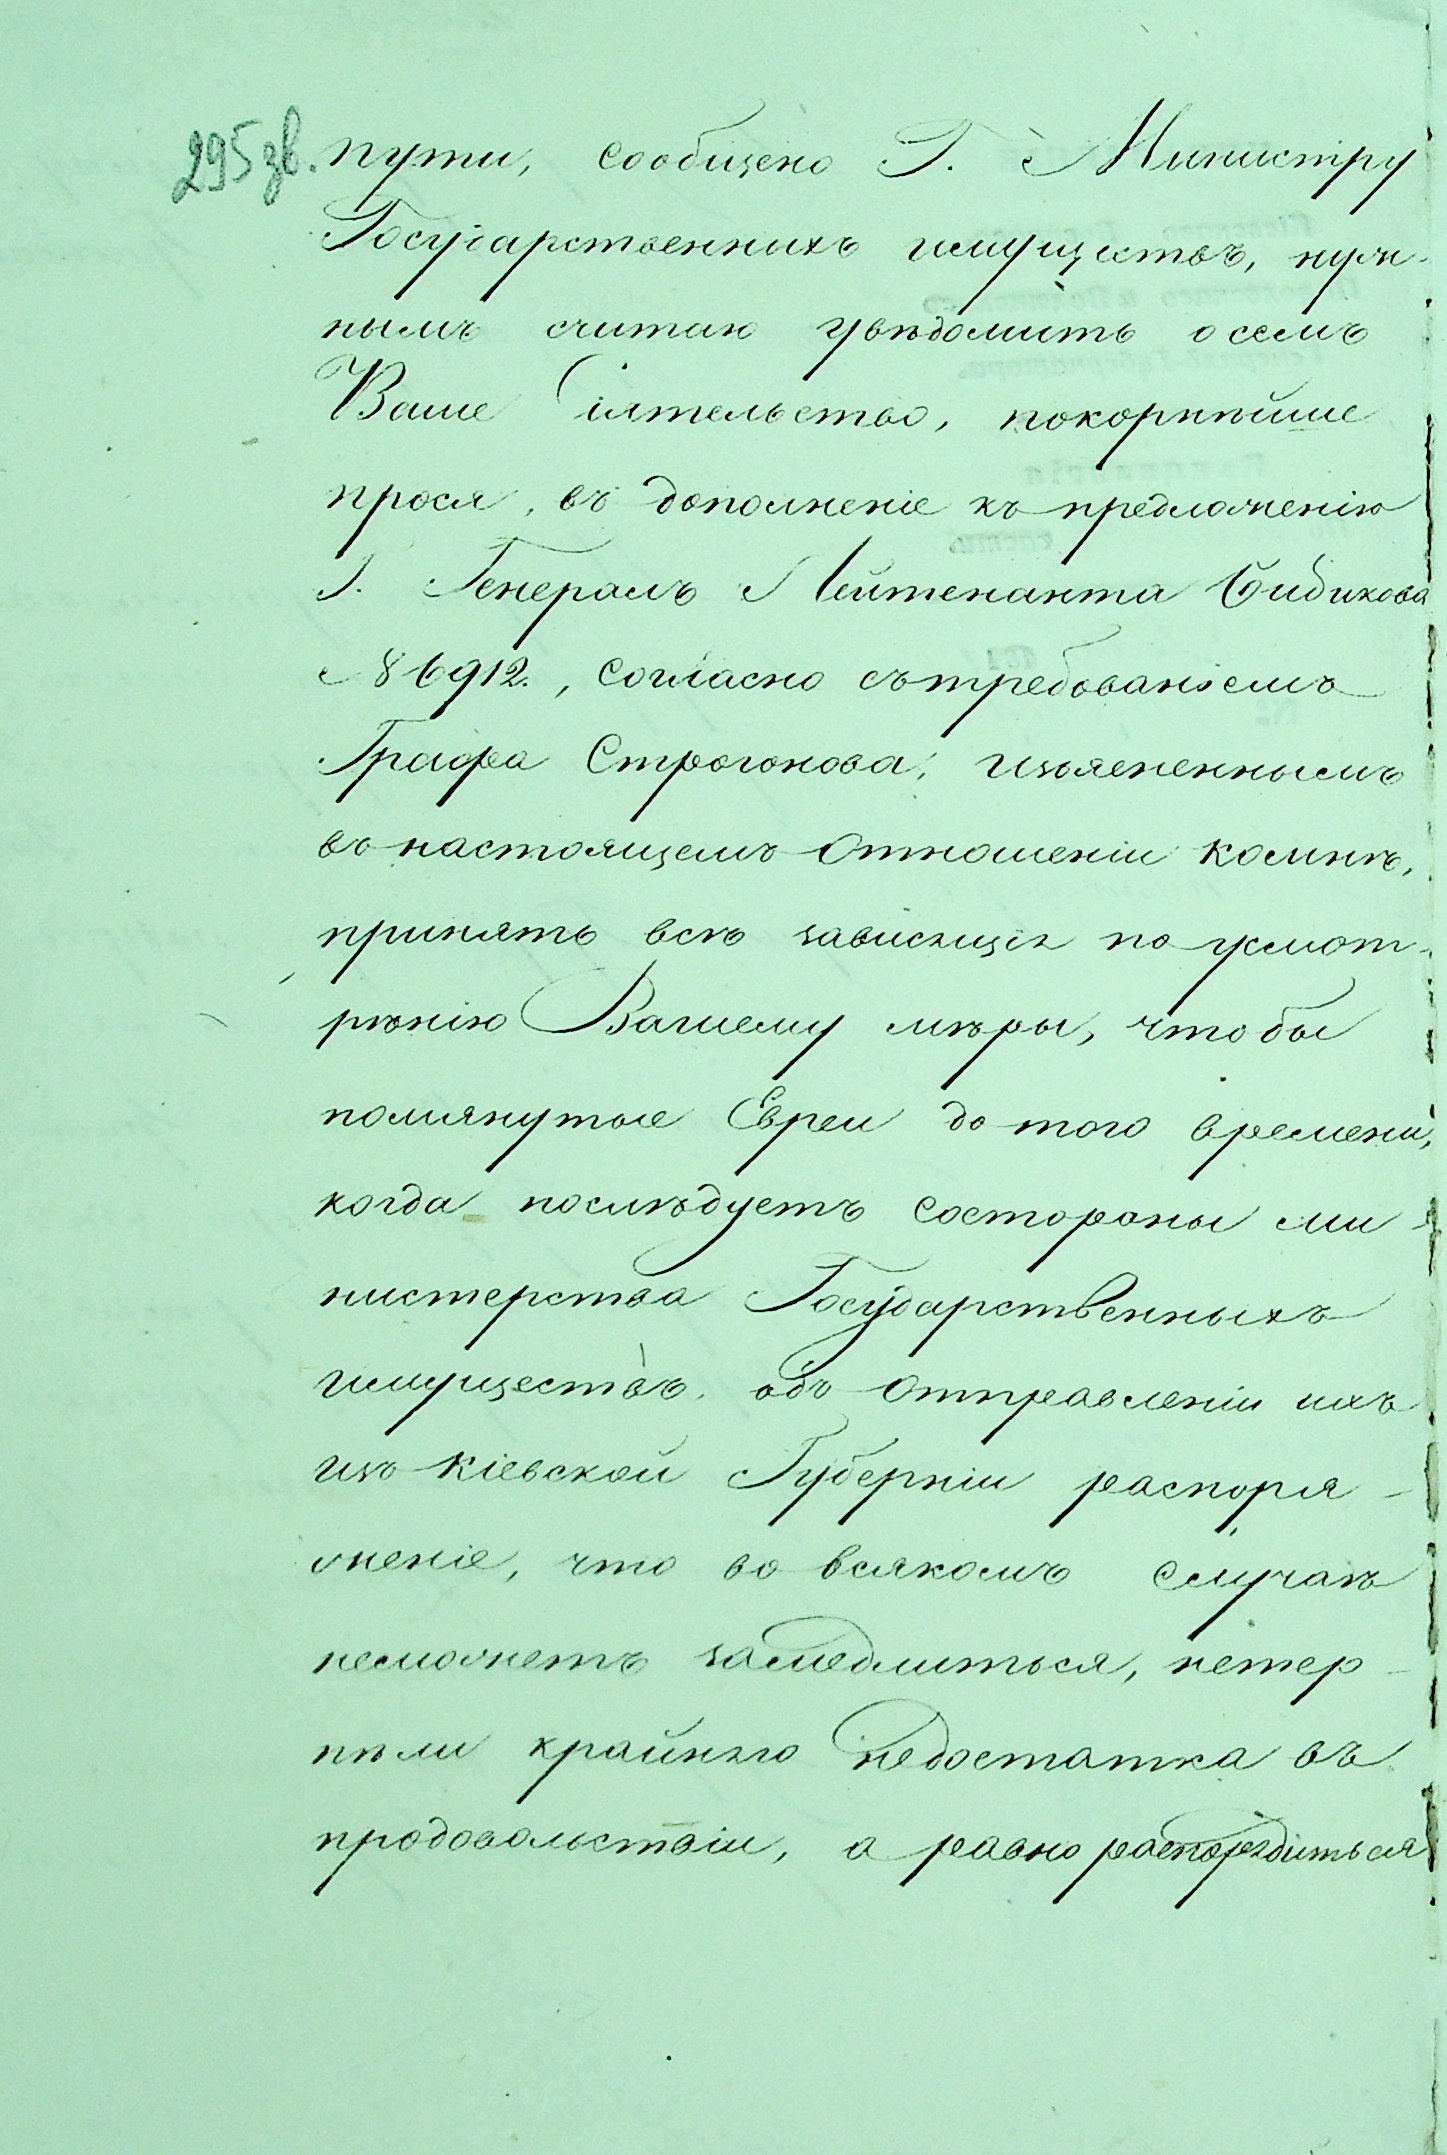 295 зв.
пути, сообщено Г. Министру
Государственныхъ имуществъ, нуж-
нымъ считаю увѣдомить о семъ
Ваше Сіятельство, покорнѣйше
прося, въ дополненіе къ предложенію
Г. Генералъ Лейтенанта Бибикова
№ 6912., согласно съ требованіемъ
Графа Строгонова, изъясненнымъ
въ настоящемъ отношеніи ко мнѣ,
принять всѣ зависящія по усмот-
рѣнію Вашему мѣры, что бы
помянутые Евреи до того времени,
когда послѣдуетъ со стороны ми-
нистерства Государственныхъ
имуществъ объ отправленіи ихъ
изъ Кіевской Губерніи распоря-
женіе, что во всякомъ случаѣ
неможетъ замедлиться, нетер-
пѣли крайняго недостатка въ
продовольствіи, а равно распорядиться